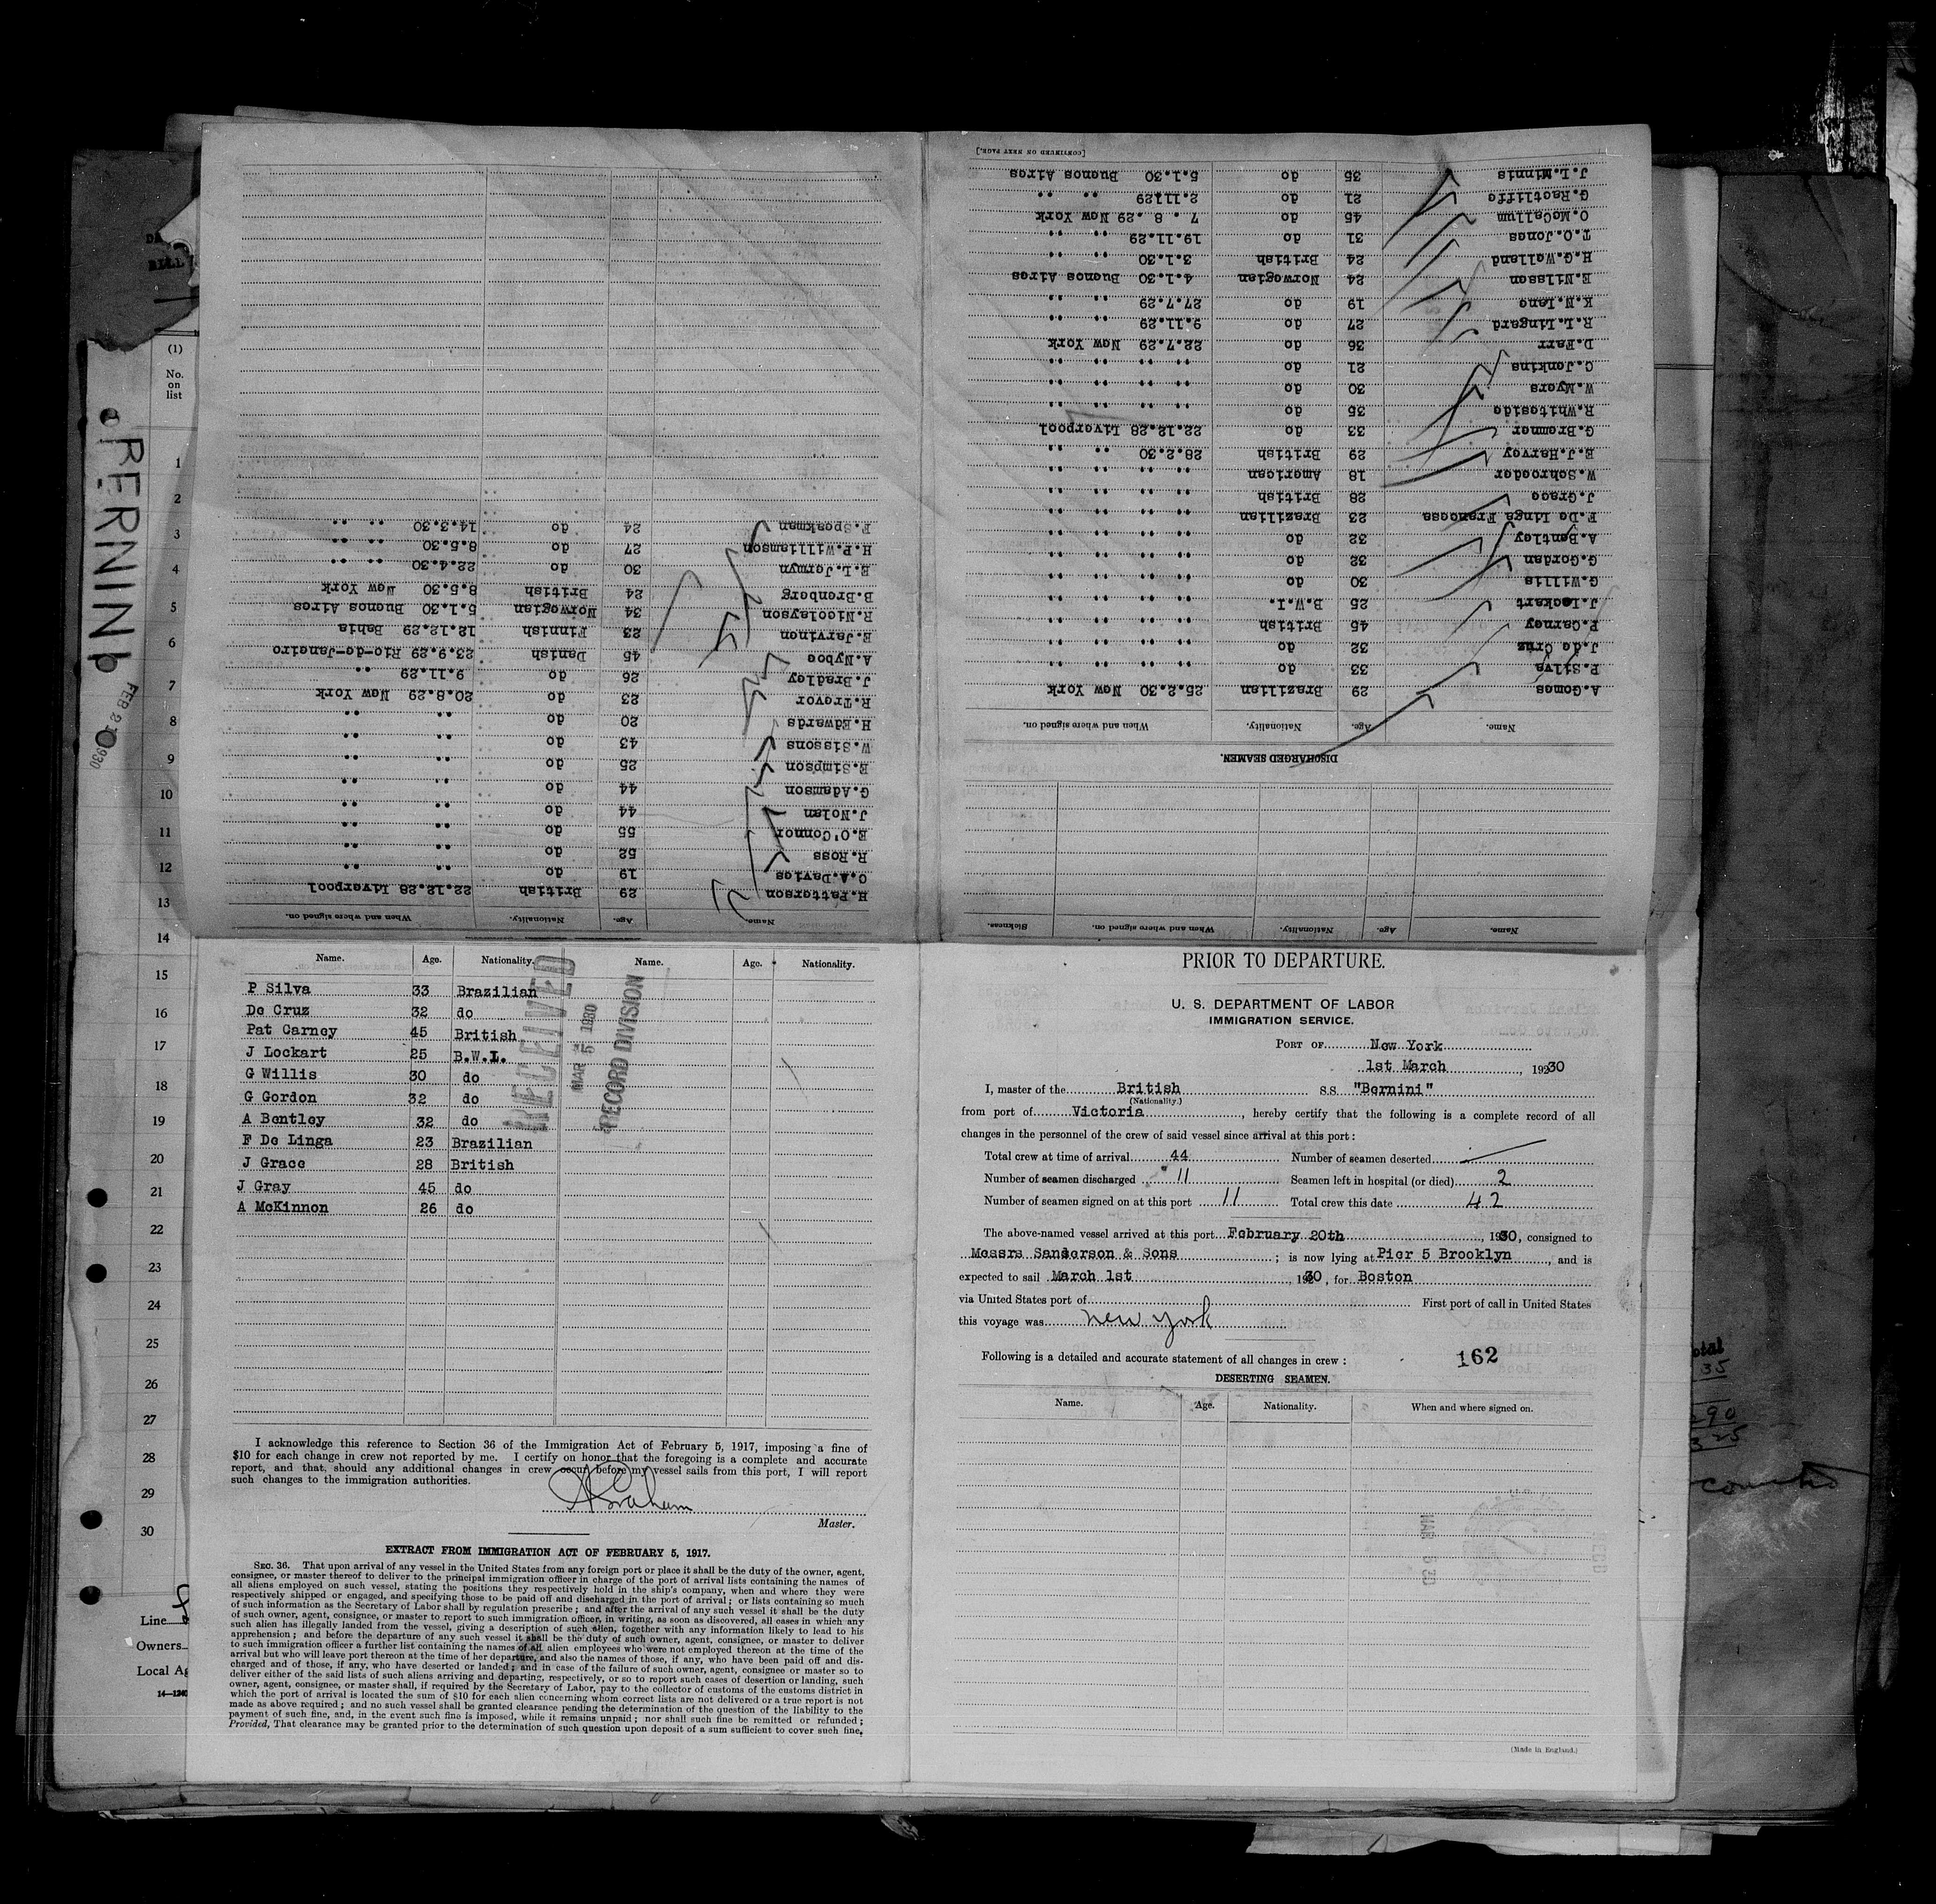 PRIOR TO DEPARTURE.
U. S. DEPARTMENT OF LABOR
IMMIGRATION SERVICE.
PORT OF New York
1st March, 19230
I, master of the British S.S. "Bernini"
(Nationality.)
from port of Victoria, hereby certify that the following is a complete record of all
changes in the personnel of the crew of said vessel since arrival at this port:
Total crew at time of arrival 44 Number of seamen deserted
Number of seamen discharged 11 Seamen left in hospital (or died) 2
Number of seamen signed on at this port 11 Total crew this date 42
The above-named vessel arrived at this port February 20th, 1930, consigned to
Messrs Sanderson & Sons; is now lying at Pier 5 Brooklyn, and is
expected to sail March 1st, 1930, for Boston
via United States port of First port of call in United States
this voyage was New York
Following is a detailed and accurate statement of all changes in crew:
162
DESERTING SEAMEN.
Name. Age. Nationality. When and where signed on.
(Made in England.)
Name. Age. Nationality. When and where signed on. Sickness.
DISCHARGED SEAMEN.
Name. Age. Nationality. When and where signed on.
A.Gomes 29 Brazilian 25.2.30 New York
P.Silva 33 do " " "
J.de Cruz 32 do " " "
P.Carney 45 British " " "
J.Lockart 25 B.W.I. " " "
G.Willis 30 do " " "
G.Gordon 32 do " " "
A.Bentley 32 do " " "
F.De Linga Francess 23 Brazilian " " "
J.Grace 28 British " " "
W.Schroeder 18 American " " "
E.J.Harvey 29 British 28.2.30 " "
G.Bremner 33 do 22.12.28 Liverpool
R.Whiteside 35 do " " "
W.Myers 30 do " " "
C.Jenkins 21 do " " "
D.Farr 36 do 22.7.29 New York
R.L.Lingard 27 do 9.11.29 " "
K.N.Lang 19 do 27.7.29 " "
E.Nilsson 24 Norwegian 4.1.30 Buenos Aires
H.G.Walland 24 British 3.1.30 " "
T.O.Jones 31 do 19.11.29 " "
O.McCallum 45 do 7 . 8 .29 New York
G.Raotliffe 21 do 2.11.29 " "
J.L.Minnis 35 do 5.1.30 Buenos Aires
[CONTINUED ON NEXT PAGE.]
Name. Age. Nationality. When and where signed on.
H.Patterson 29 British 22.12.28 Liverpool
C.A.Davies 19 do " "
R.Ross 52 do " "
E.O'Connor 55 do " "
J.Nolan 44 do " "
G.Adamson 44 do " "
E.Simpson 25 do " "
W.Sissons 43 do " "
H.Edwards 20 do " "
R.Trevor 23 do 20.8.29 New York
J.Bradley 26 do 9.11.29 " "
A.Nyboe 45 Danish 23.9.29 Rio-de-Janeiro
E.Jarvinen 23 Finnish 12.12.29 Bahia
R.Nicolayson 34 Norwegian 5.1.30 Buenos Aires
B.Brenberg 24 British 8.5.30 New York
E.L.Jermyn 30 do 22.4.30 " "
H.P.Williamson 27 do 8.5.30 " "
F.Speakman 24 do 14.3.30 " "
Name. Age. Nationality. Name. Age. Nationality.
P Silva 33 Brazilian
De Cruz 32 do
Pat Carney 45 British
J Lockart 25 B.W.I.
G Willis 30 do
G Gordon 32 do
A Bentley 32 do
F De Linga 23 Brazilian
J Grace 28 British
J Gray 45 do
A McKinnon 26 do
RECEIVED
MAR 5 1930
RECORD DIVISION
I acknowledge this reference to Section 36 of the Immigration Act of February 5, 1917, imposing a fine of
$10 for each change in crew not reported by me. I certify on honor that the foregoing is a complete and accurate
report, and that, should any additional changes in crew occur before my vessel sails from this port, I will report
such changes to the immigration authorities.
Master.
EXTRACT FROM IMMIGRATION ACT OF FEBRUARY 5, 1917.
SEC. 36. That upon arrival of any vessel in the United States from any foreign port or place it shall be the duty of the owner, agent,
consignee, or master thereof to deliver to the principal immigration officer in charge of the port of arrival lists containing the names of
all aliens employed on such vessel, stating the positions they respectively hold in the ship's company, when and where they were
respectively shipped or engaged, and specifying those to be paid off and discharged in the port of arrival; or lists containing so much
of such information as the Secretary of Labor shall by regulation prescribe; and after the arrival of any such vessel it shall be the duty
of such owner, agent, consignee, or master to report to such immigration officer, in writing, as soon as discovered, all cases in which any
such alien has illegally landed from the vessel, giving a description of such alien, together with any information likely to lead to his
apprehension; and before the departure of any such vessel it shall be the duty of such owner, agent, consignee, or master to deliver
to such immigration officer a further list containing the names of all alien employees who were not employed thereon at the time of the
arrival but who will leave port thereon at the time of her departure, and also the names of those, if any, who have been paid off and dis-
charged and of those, if any, who have deserted or landed; and in case of the failure of such owner, agent, consignee or master so to
deliver either of the said lists of such aliens arriving and departing, respectively, or so to report such cases of desertion or landing, such
owner, agent, consignee, or master shall, if required by the Secretary of Labor, pay to the collector of customs of the customs district in
which the port of arrival is located the sum of $10 for each alien concerning whom correct lists are not delivered or a true report is not
made as above required; and no such vessel shall be granted clearance pending the determination of the question of the liability to the
payment of such fine, and, in the event such fine is imposed, while it remains unpaid; nor shall such fine be remitted or refunded;
Provided, That clearance may be granted prior to the determination of such question upon deposit of a sum sufficient to cover such fine.
(1)
No.
on
list
1
2
3
4
5
6
7
8
9
10
11
12
13
14
15
16
17
18
19
20
21
22
23
24
25
26
27
28
29
30
Line
Owners
Local Ag